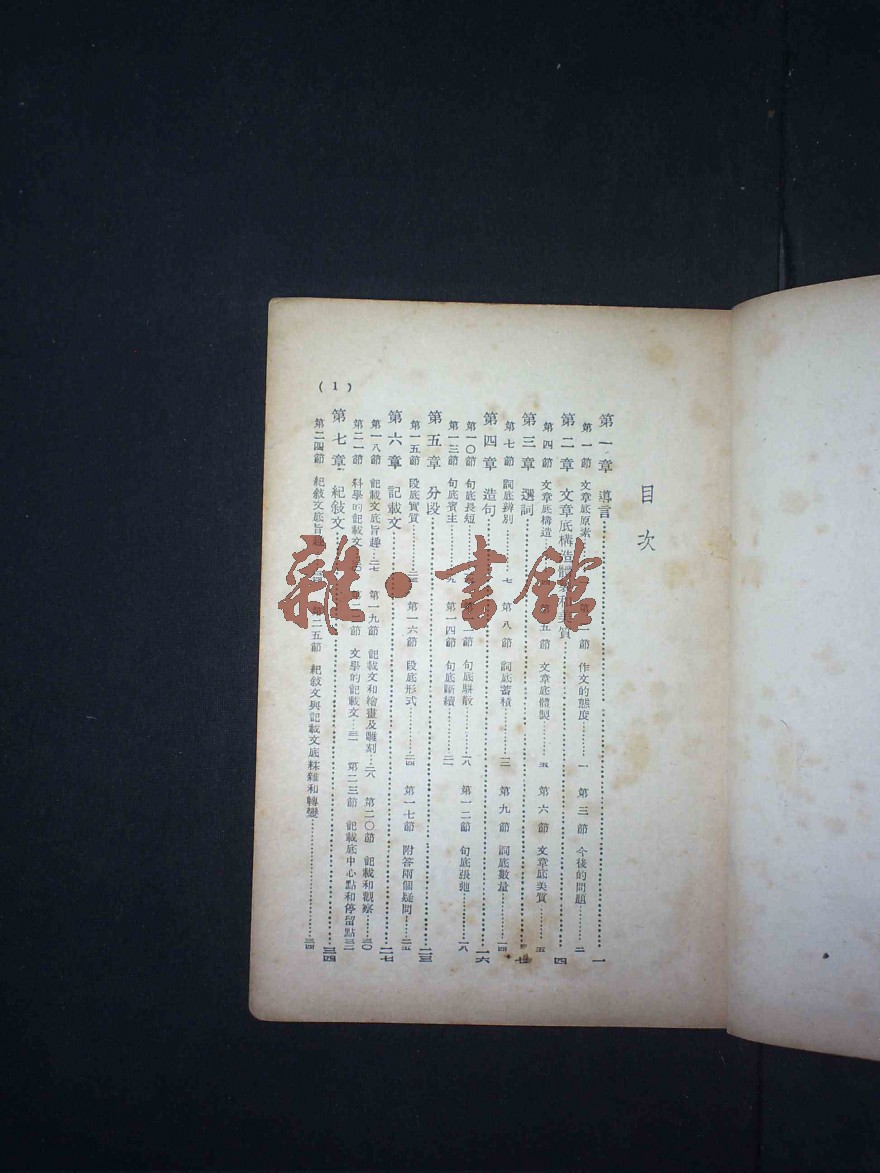 目次
第一章 導言……一
第一節 文章底原素 作文的態度……一 第三節 今後的問題……二
第二章 文章底構造體製和美質……四
第四節 文章底構造 五節 文章底體製……五 第六節 文章底美質……五
第三章 選詞……七
第七節 詞底辨別……七 第八節 詞底蓄積……一三 第九節 詞底數量……一四
第四章 造句……一六
第一〇節 句底長短 句底駢散……一八 第一二節 句底張弛……一八
第一三節 句底賓主 第一四節 句底斷續……二一
第五章 分段……二三
第一五節 段底實質……二三 第一六節 段底形式……二四 第一七節 附答兩個疑問……二五
第六章 記載文……二七
第一八節 記載文底旨趣…二七 第一九節 記載文和繪畫及雕刻…二八 第二〇節 記載和觀察…三〇
第二一節 科學的記載文 節 文學的記載文…三一 第二三節 記載底中心點和停留點三二
第七章 紀敍文……三四
第二四節 紀敍文底旨趣 第二五節 紀敍文與記載文底糅雜和轉變……三四
(1)
雜·書館